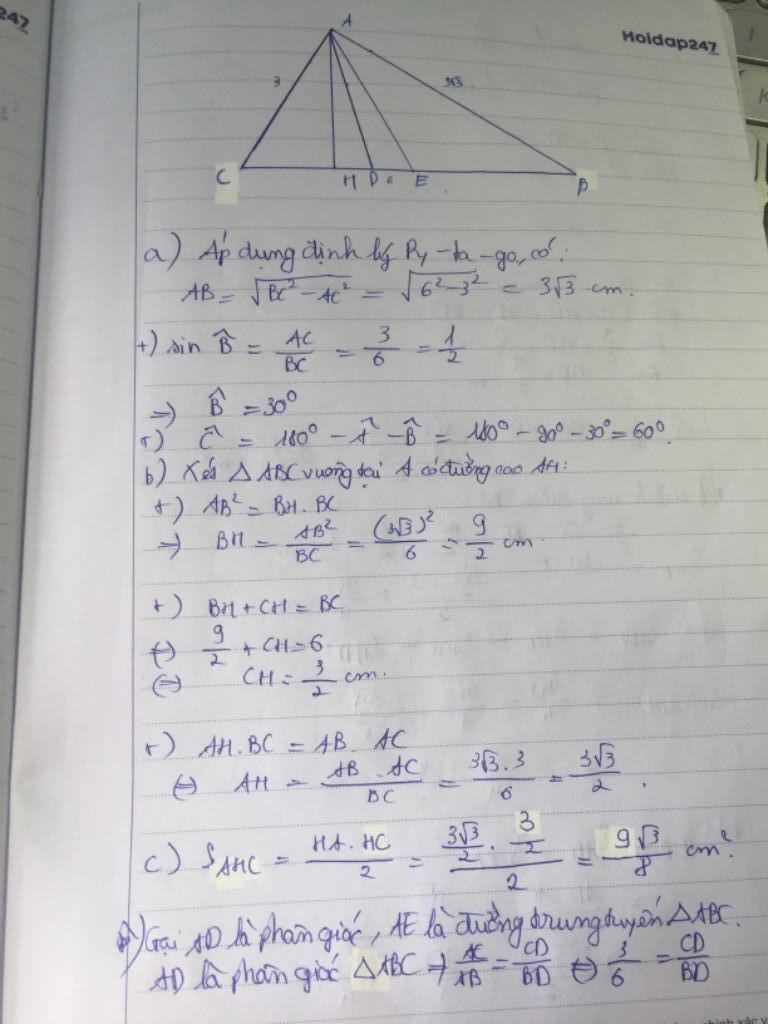 247
Hoidap247
A
3
3√3
C
H D 6 E
B
a) Áp dụng định lý Py-ta-go, có:
AB = √(BC² - AC²) = √(6² - 3²) = 3√3 cm.
+) sin B̂ = AC/BC = 3/6 = 1/2
=> B̂ = 30°
+) Ĉ = 180° - Â - B̂ = 180° - 90° - 30° = 60°.
b) Xét △ ABC vuông tại A có đường cao AH:
+) AB² = BH. BC
=> BH = AB²/BC = (3√3)²/6 = 9/2 cm
+) BH + CH = BC
<=> 9/2 + CH = 6
<=> CH = 3/2 cm.
+) AH. BC = AB. AC
<=> AH = AB. AC/BC = 3√3. 3/6 = 3√3/2.
c) S_AHC = HA. HC/2 = (3√3/2 . 3/2)/2 = 9√3/8 cm².
) Gọi AD là phân giác, AE là đường trung tuyến △ABC.
AD là phân giác △ABC => AC/AB = CD/BD <=> 3/6 = CD/BD
chính xác v